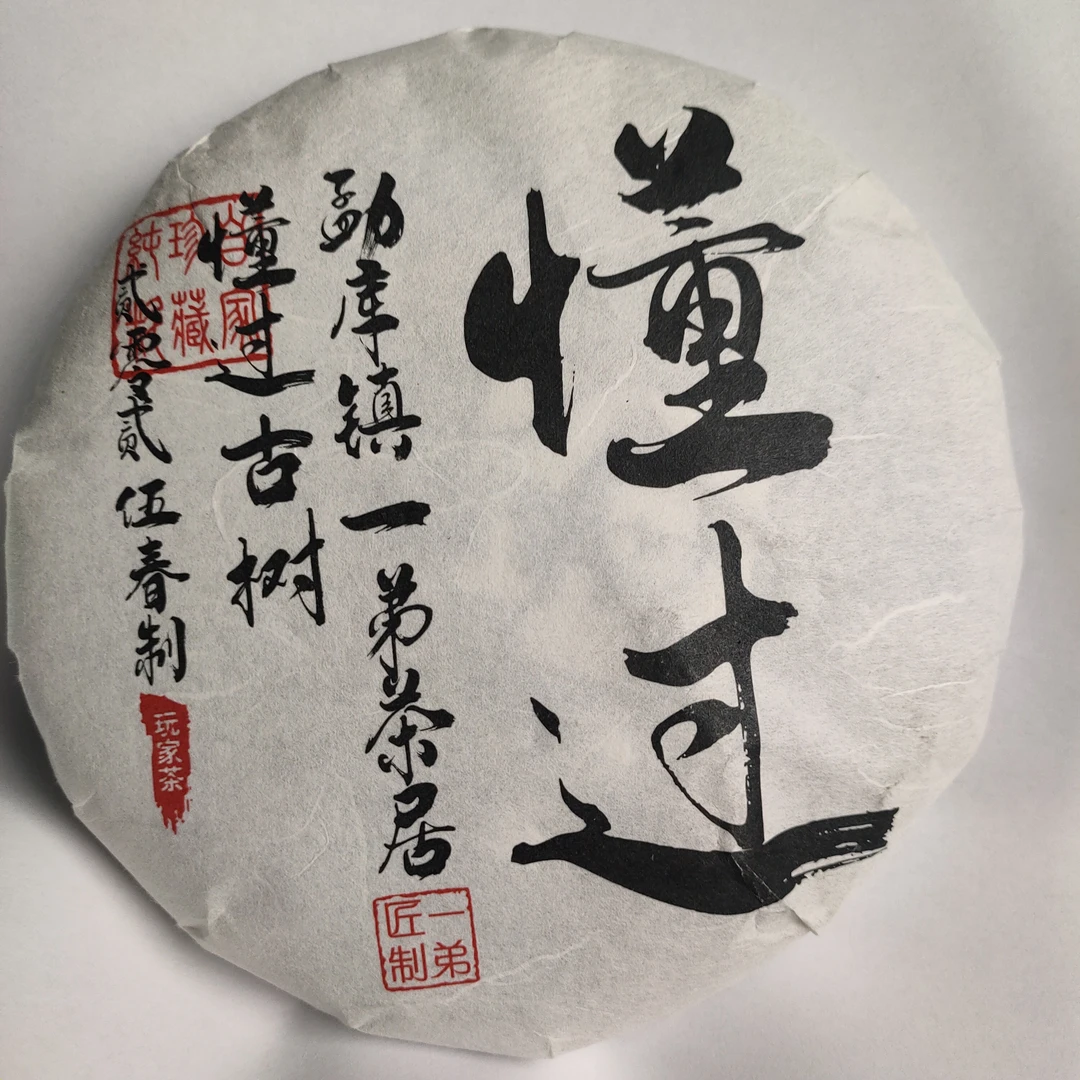 懂过
勐库镇一弟茶居
一弟
匠制
懂过古树
自家
珍藏
纯料
贰零贰伍春制
玩家茶